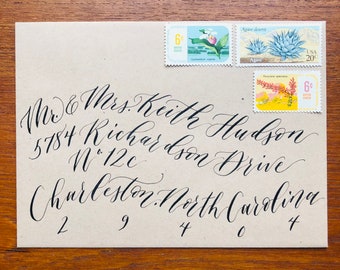 Agave deserti
6¢
USA
Agave
20¢
6¢
Mr. & Mrs. Keith Hudson
5784 Richardson Drive
No 12c
Charleston, North Carolina
2 9 4 0 4